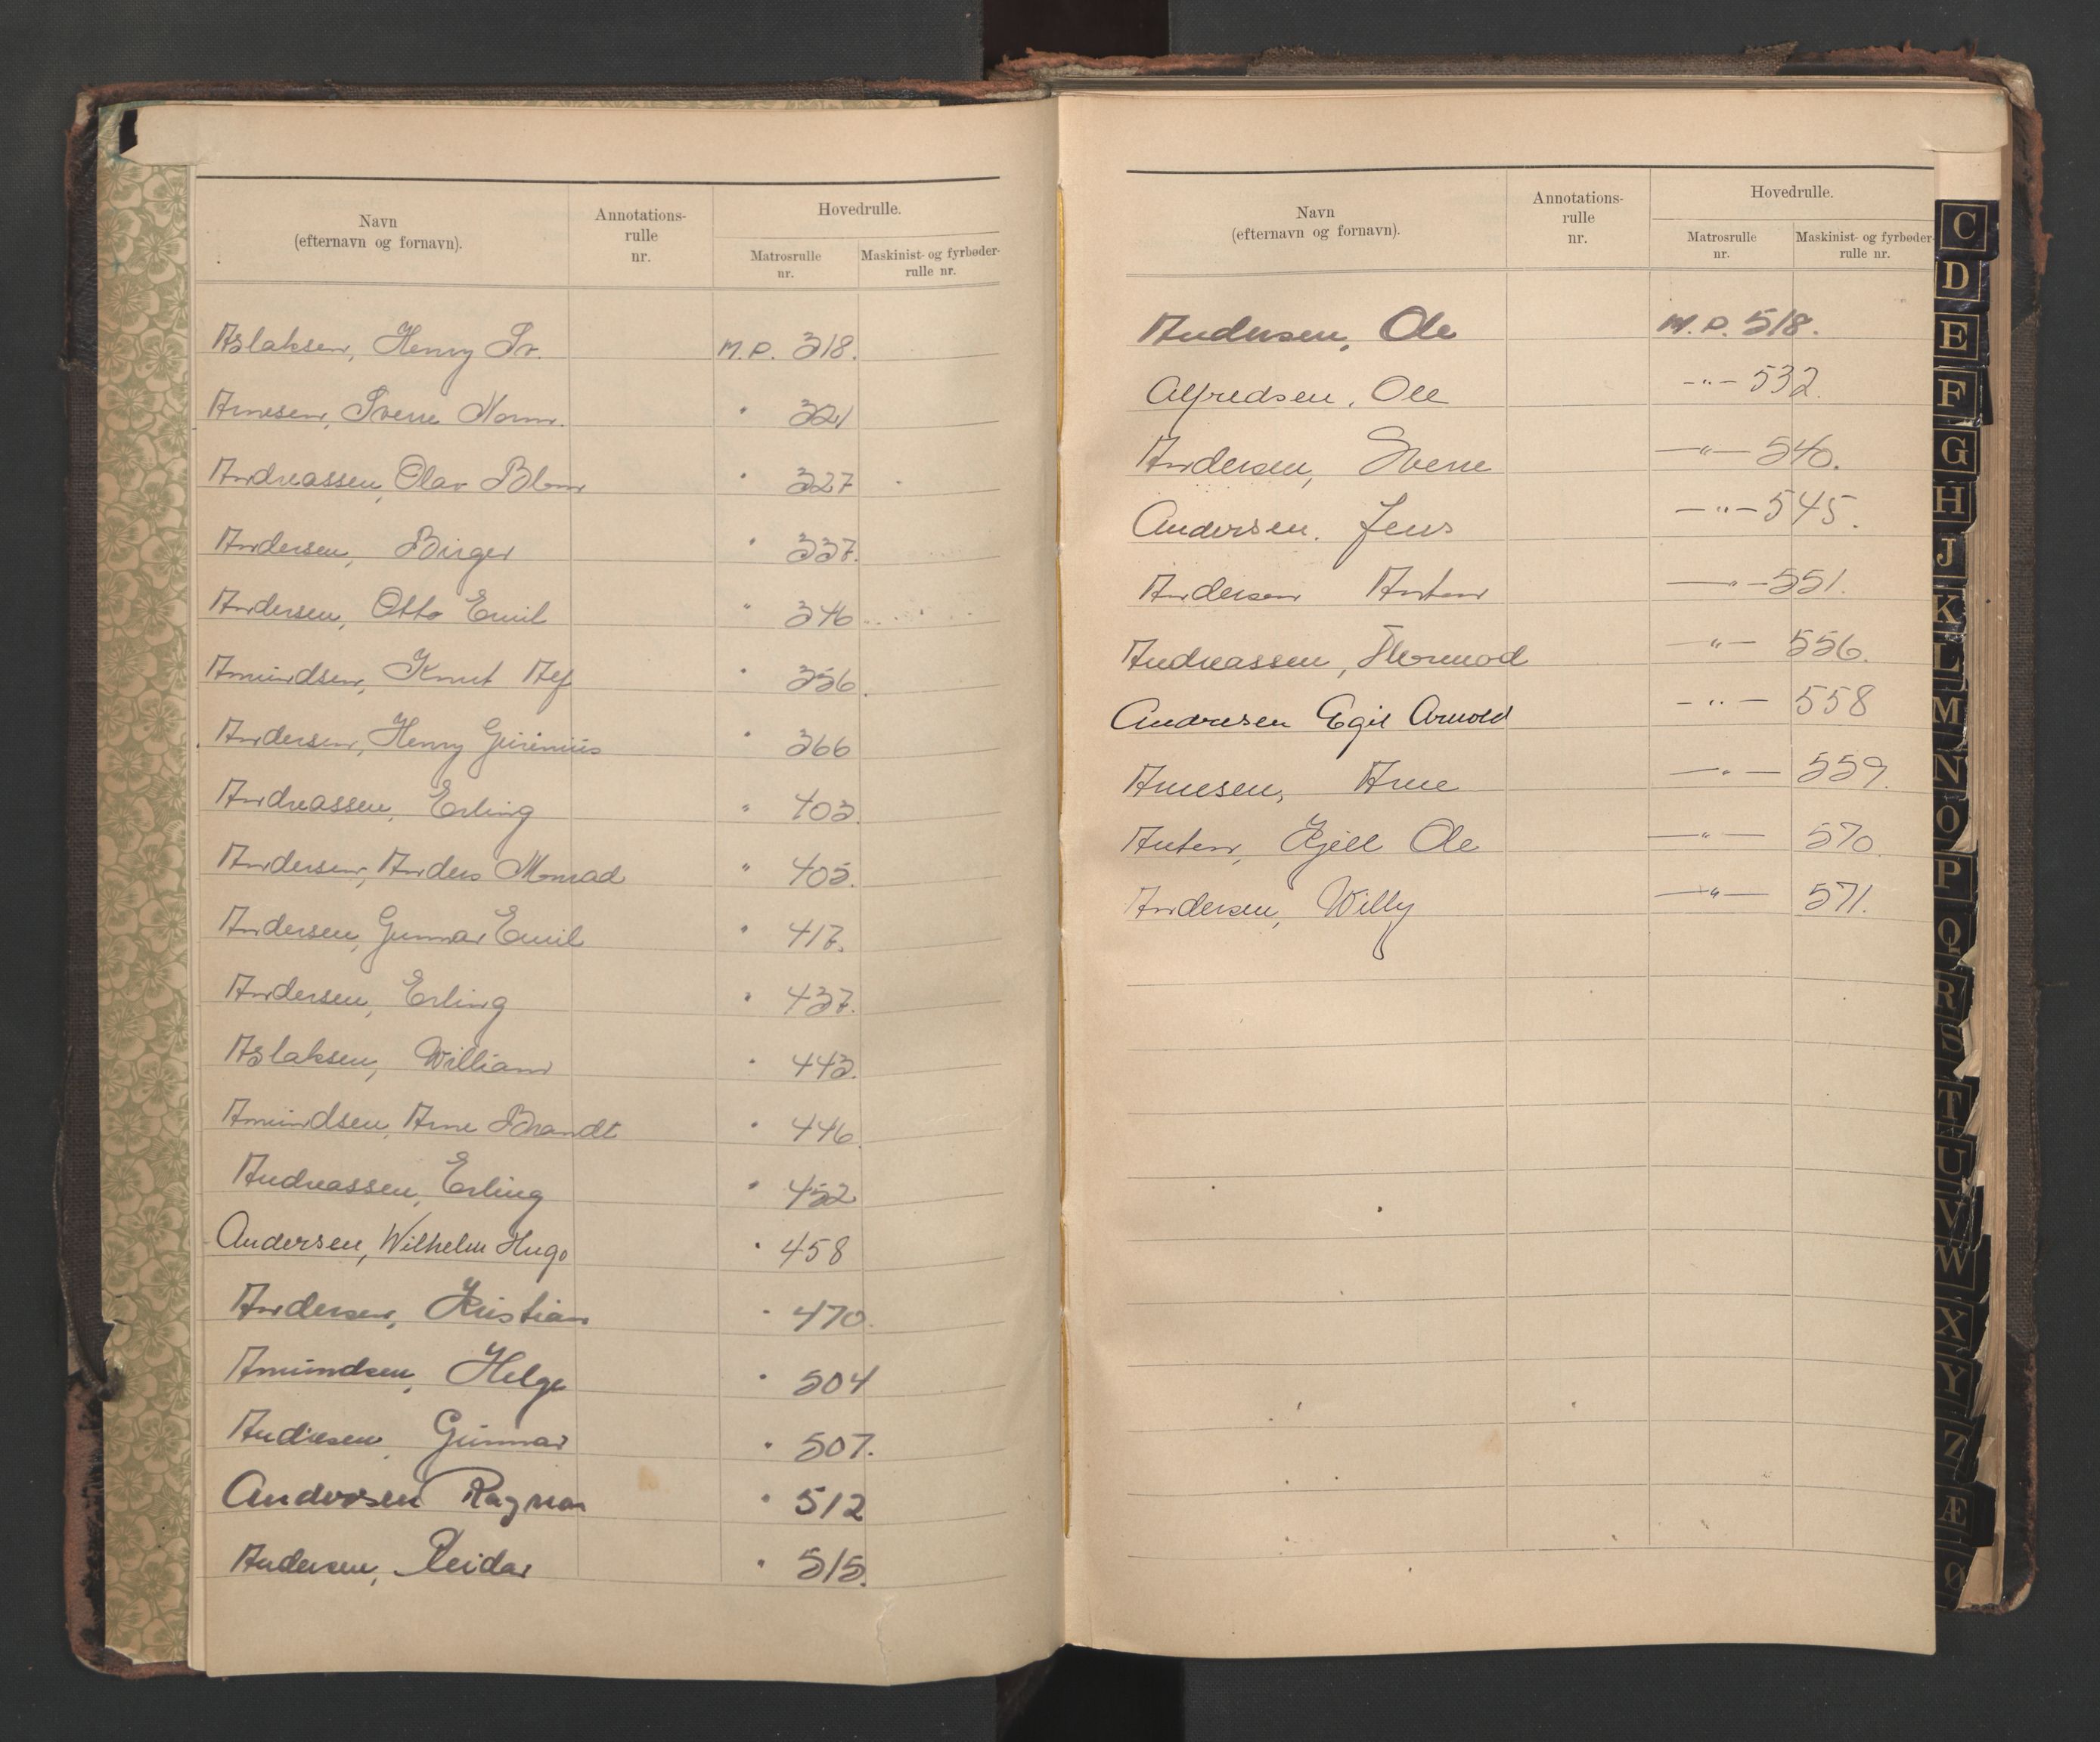 Navn
(efternavn og fornavn).
Annotations-
rulle
nr.
Hovedrulle.
Matrosrulle
nr.
Maskinist- og fyrbøder-
rulle nr.
Aslaksen, Henry Sv. M.P. 318.
Arnesen, Sverre Norm. " 321
Andreassen, Olav Blom " 327
Andersen, Birger " 337.
Andersen, Otto Emil " 346
Amundsen, Knut Alf " 356.
Andersen, Henry " 366
Andreassen, Erling " 403.
Andersen, Anders Monrad " 405.
Andersen, Gunnar Emil " 417.
Andersen, Erling " 437.
Aslaksen, William " 443.
Amundsen, Arne Brandt " 446.
Andreassen, Erling " 452
Andersen, Wilhelm Hugo " 458
Andersen, Kristian " 470.
Amundsen, Helge " 504
Andresen, Gunnar " 507.
Andersen Ragnar " 512
Andersen, Reidar " 515.
Navn
(efternavn og fornavn).
Annotations-
rulle
nr.
Hovedrulle.
Matrosrulle
nr.
Maskinist- og fyrbøder-
rulle nr.
Andersen, Ole M.P. 518.
Alfredsen, Ole -"- 532.
Andersen, Sverre -"- 540.
Andersen. Jens -"- 545.
Andersen Anton -"- 551.
Andreassen, Thormod -"- 556.
Andresen Egil Arnold -"- 558
Arnesen, Arne -"- 559.
Anton, Kjell Ole -"- 570.
Andersen, Willy -"- 571.
C
D
E
F
G
H
J
K
L
M
N
O
P
Q
R
S
T
U
V
W
X
Y
Z
Æ
Ø